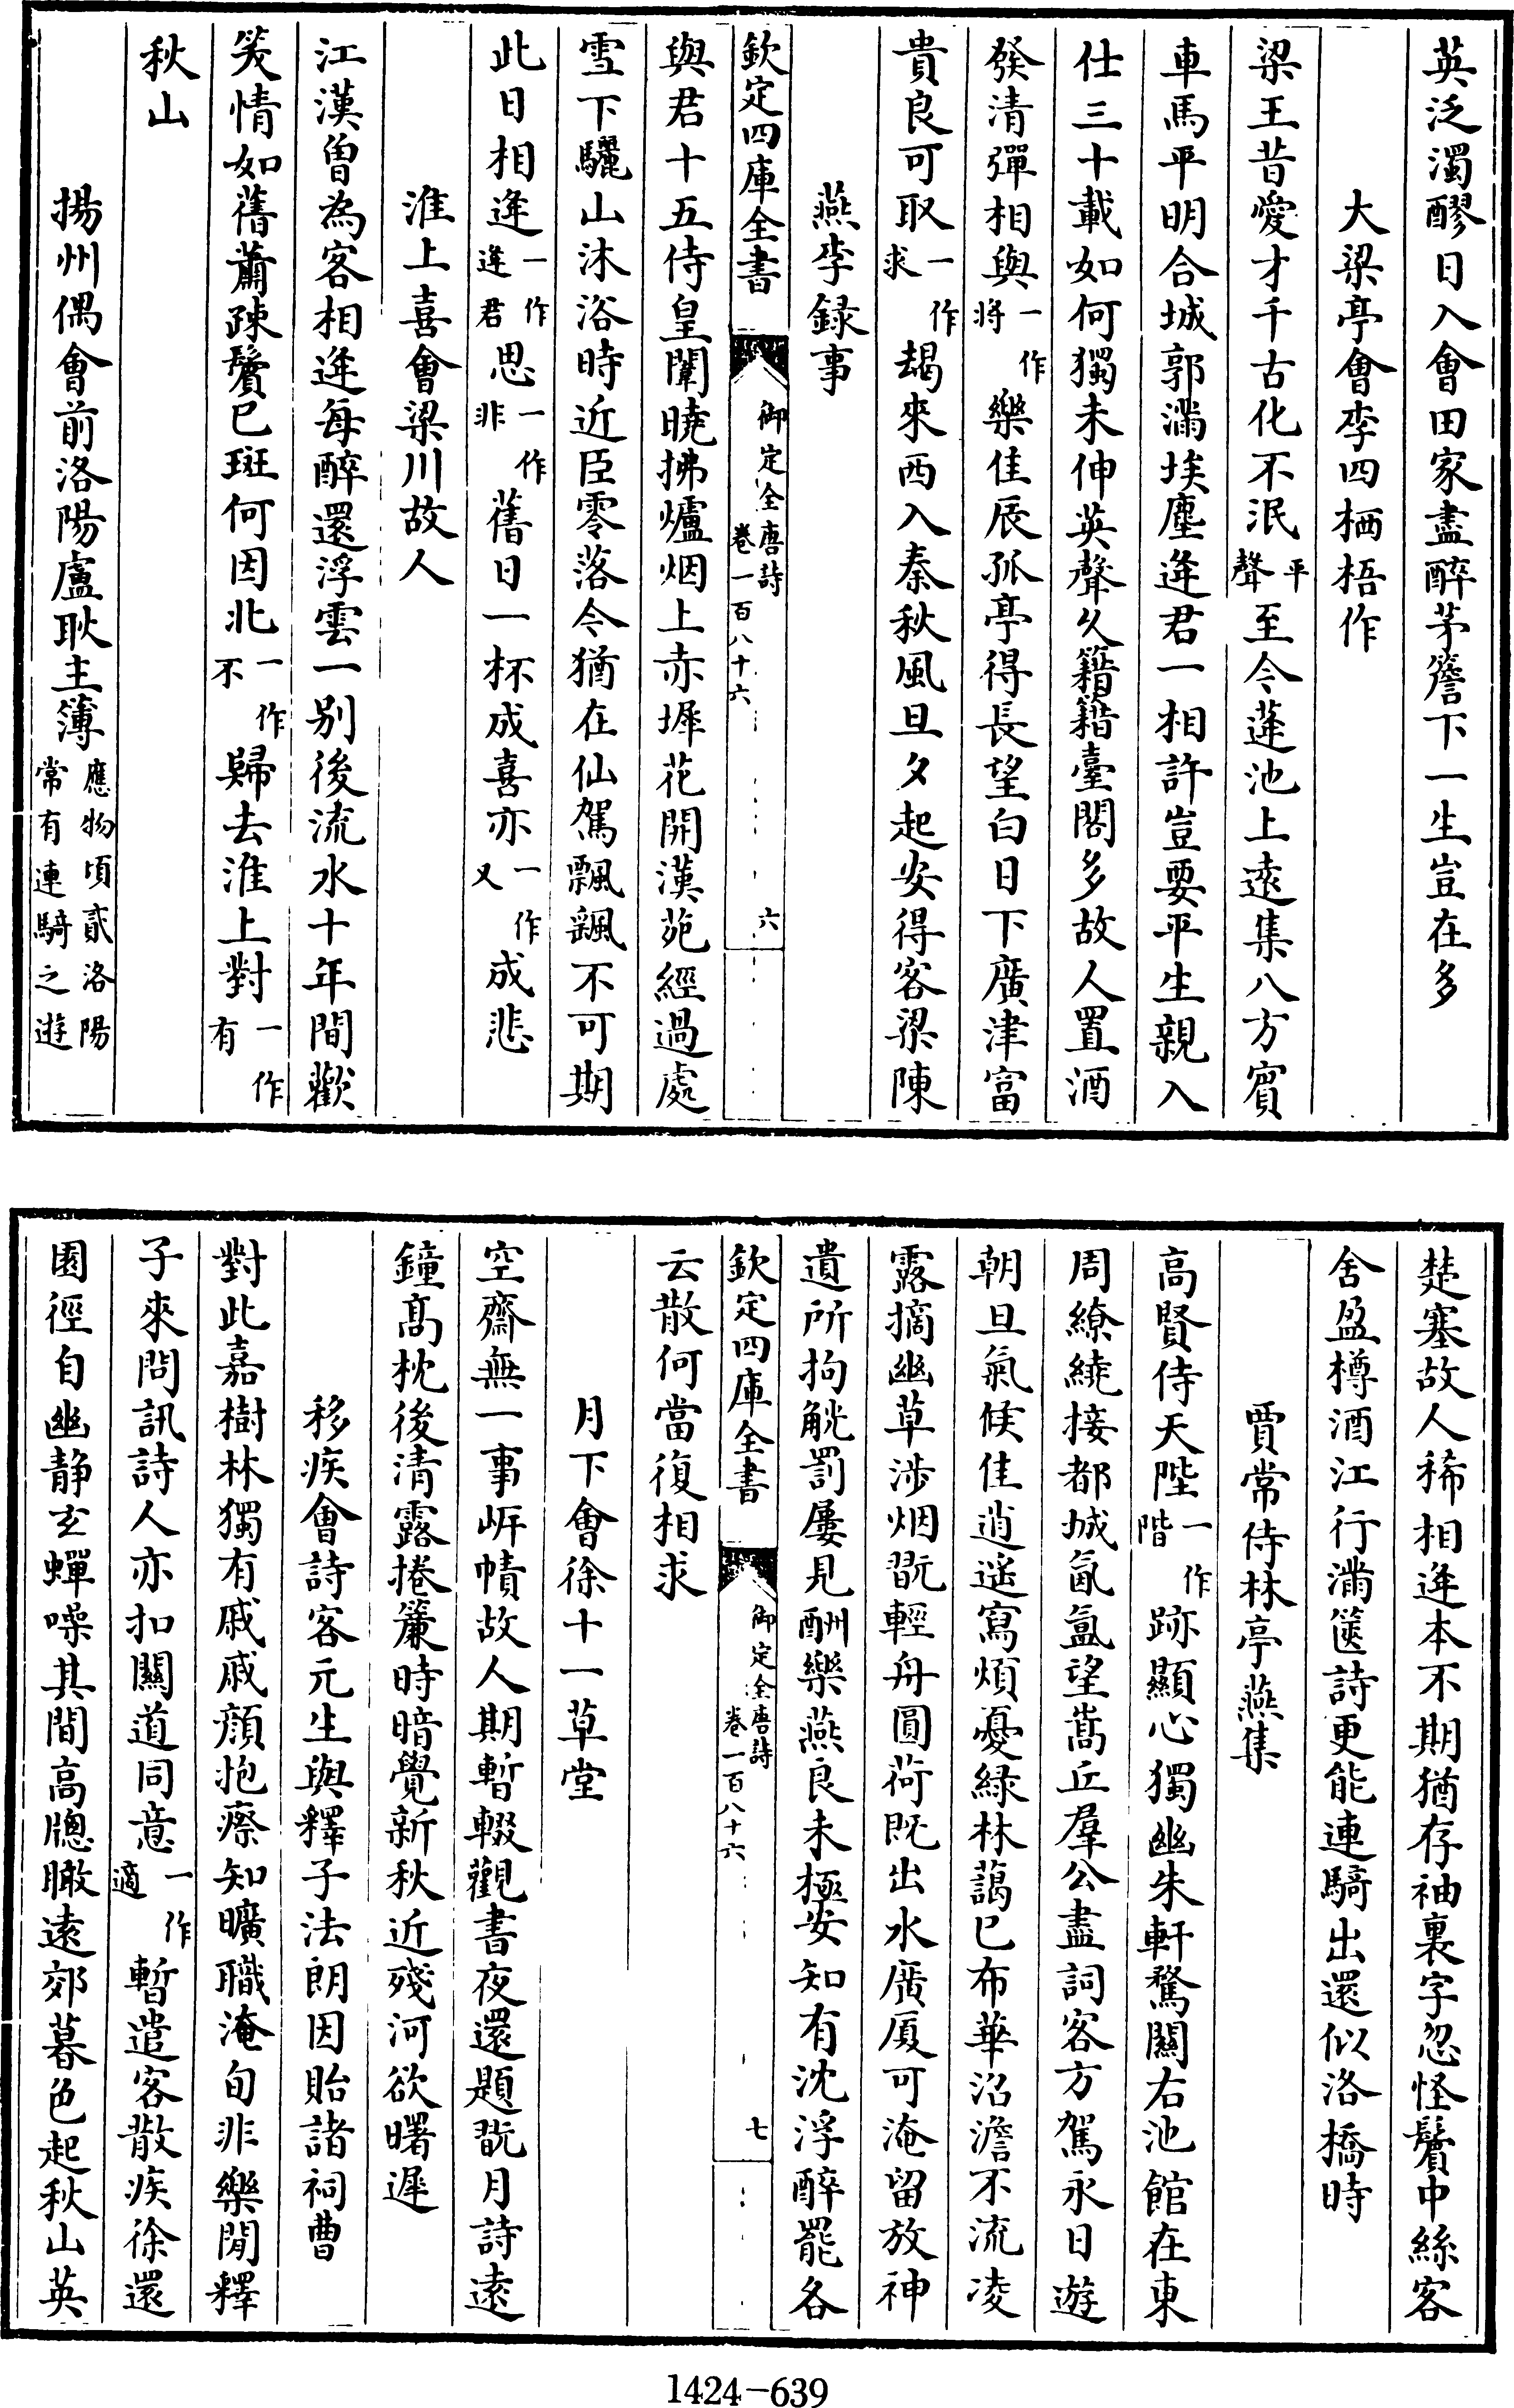 英泛濁醪日入會田家盡醉茅簷下一生豈在多
大梁亭會李四栖梧作
梁王昔愛才千古化不泯平聲至今蓬池上遠集八方賓
車馬平明合城郭滿埃塵逢君一相許豈要平生親入
仕三十載如何獨未伸英聲久籍籍臺閣多故人置酒
發清彈相與一作將樂佳辰孤亭得長望白日下廣津富
貴良可取一作求朅來西入秦秋風旦夕起安得客梁陳
燕李録事
欽定四庫全書
御定全唐詩
卷一百八十六
六
與君十五侍皇闈曉拂爐烟上赤墀花開漢苑經過處
雪下驪山沐浴時近臣零落今猶在仙駕飄颻不可期
此日相逢一作逢君思一作非舊日一杯成喜亦一作又成悲
淮上喜會梁川故人
江漢曾為客相逢每醉還浮雲一别後流水十年間歡
笑情如舊蕭疎鬢已斑何因北一作不歸去淮上對一作有
秋山
揚州偶會前洛陽盧耿主簿應物頃貳洛陽常有連騎之遊
楚塞故人稀相逢本不期猶存袖裏字忽怪鬢中絲客
舍盈樽酒江行滿篋詩更能連騎出還似洛橋時
賈常侍林亭燕集
高賢侍天陛一作階跡顯心獨幽朱軒騖關右池館在東
周繚繞接都城氤氳望嵩丘羣公盡詞客方駕永日遊
朝旦氣候佳逍遥寫煩憂緑林藹已布華沼澹不流凌
露摘幽草涉烟翫輕舟圓荷既出水廣厦可淹留放神
遺所拘觥罰屢見酬樂燕良未極安知有沈浮醉罷各
欽定四庫全書
御定全唐詩
卷一百八十六
七
云散何當復相求
月下會徐十一草堂
空齋無一事岸幘故人期暫輟觀書夜還題翫月詩遠
鐘高枕後清露捲簾時暗覺新秋近殘河欲曙遲
移疾會詩客元生與釋子法朗因貽諸祠曹
對此嘉樹林獨有戚戚顔抱瘵知曠職淹旬非樂閒釋
子來問訊詩人亦扣關道同意一作適暫遣客散疾徐還
園徑自幽静玄蟬噪其間高牕瞰遠郊暮色起秋山英
1424-639